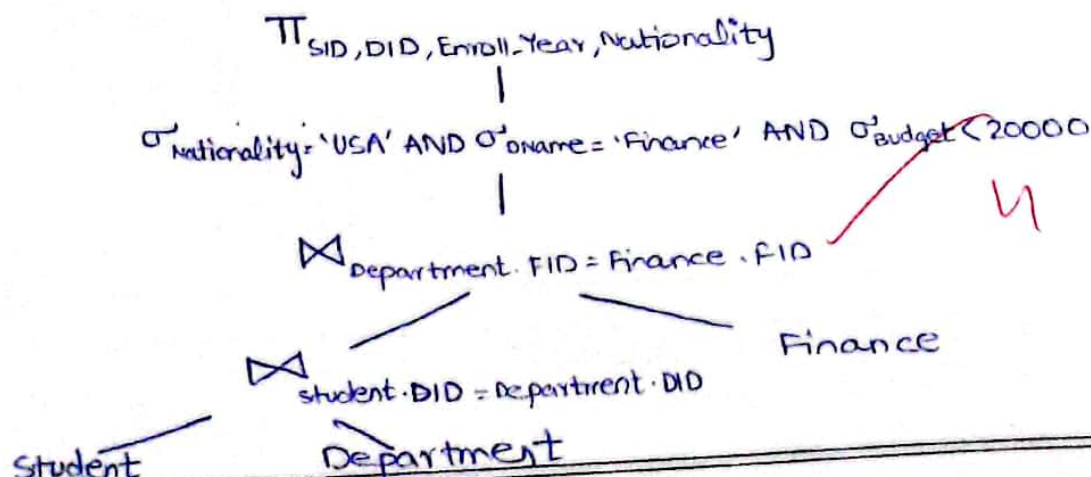 π SID, DID, Enroll_Year, Nationality
σ Nationality = 'USA' AND σ DName = 'Finance' AND σ Budget < 20000
⋈ Department.FID = Finance.FID
Finance
⋈ Student.DID = Department.DID
Student Department